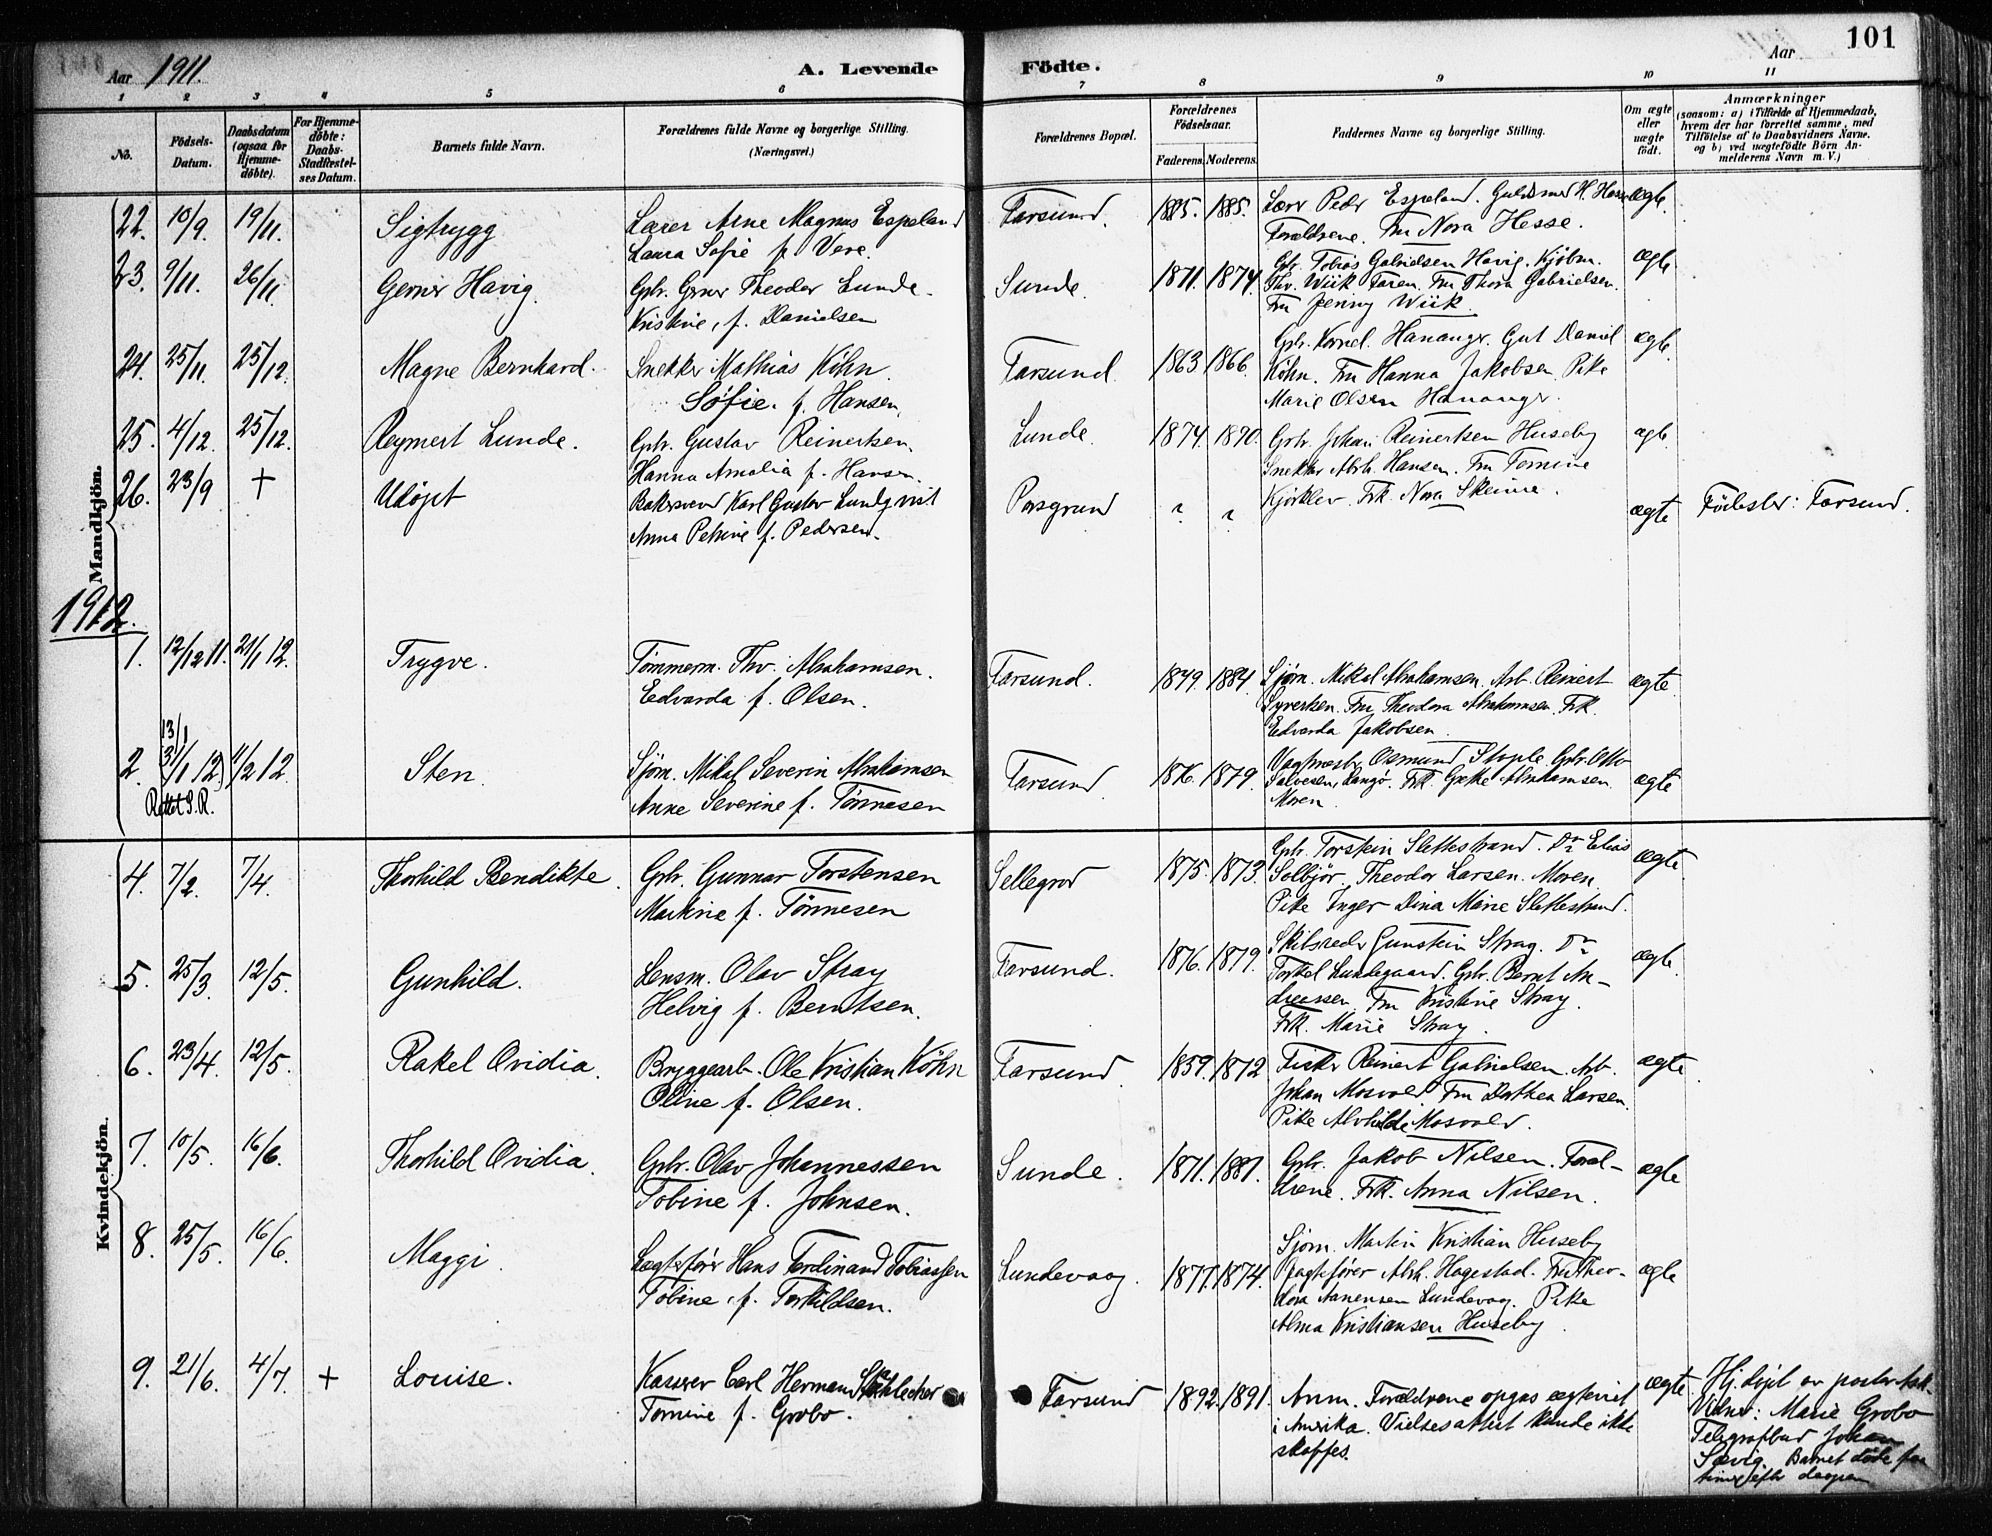 101
Aar 1911.
A. Levende Födte.
Aar
1 2 3 4 5 6 7 8 9 10 11
No.
Födsels-Datum.
Daabsdatum (ogsaa for Hjemme-döbte).
For Hjemme-döbte: Daabs-Stadfæstel-ses Datum.
Barnets fulde Navn.
Forældrenes fulde Navne og borgerlige Stilling.
(Næringsvei.)
Forældrenes Bopæl.
Forældrenes Födselsaar.
Faderens. Moderens.
Faddernes Navne og borgerlige Stilling.
Om ægte eller uægte født.
Anmærkninger
(saasom: a) i Tilfælde af Hjemmedaab,
hvem der har forrettet samme, med
Tilföielse af to Daabsvidners Navne.
og b) ved uægtefödte Börn An-
melderens Navn m. V.)
Mandkjön.
22. 10/9. 19/11. Sigtrygg Lærer Arne Magnus Espeland Farsund. 1885. 1885. Lærer Peder Espeland. Guldsmed H. Hesse ægte.
Laura Sofie f. Vere. Forældrene. Fru Nora Hesse.
23. 9/11. 26/11 Gerner Havig. Gbr. Gerner Theodor Lunde. Sunde. 1871. 1874. Gbr. Tobias Gabrielsen Havig. Kjøbm. ægte
Kristine, f. Danielsen Thv. Wiik. Faren. Fru Thora Gabrielsen.
Fru Jenny Wiik.
24. 25/11. 25/12. Magne Bernhard. Snekker Mathias Köhn. Farsund. 1863 1866. Gbr. Kornel. Hananger. Gut Daniel ægte.
Sofie. f. Hansen. Köhn. Fru Hanna Jakobsen. Pike
Marie Olsen Hananger.
25. 4/12. 25/12. Reymert Lunde. Gbr. Gustav Reinertsen. Lunde. 1874. 1890. Gbr. Johan Reinertsen Huseby ægte
Hanna Amalia f. Hansen. Snekker Abrh. Hansen. Fru Tomine
26. 23/9 + Udöpt Bakersvend Karl Gustav Lundqvist Porsgrund ? ? Kjörklev. Frk. Nora Skeime. ægte Födested: Farsund.
Anna Petrine f. Pedersen.
1912.
1. 12/12 11. 21/1 12. Trygve. Tömmerm. Thv. Abrahamsen. Farsund. 1879. 1884. Sjöm. Mikal Abrahamsen. Arb. Reinert ægte.
Edvarda f. Olsen. Syvertsen. Fru Theodora Abrahamsen. Frk.
Edvarda Jakobsen.
13/1
2. 31/1 12. 11/2 12. Sten. Sjöm. Mikal Severin Abrahamsen Farsund. 1876. 1879. Osmund Stople. Gbr. Otto
Rettet S.R. Anne Severine f. Tönnesen Salvesen, Langö. Frk. Abrahamsen. ægte
Moren.
Kvindekjön.
4. 7/2. 7/4. Thorhild Bendikte. Gbr. Gunnar Torstensen Sellegrod 1875. 1873. Gbr. Torstein Slettestrand. Do Elias ægte
Martine f. Tönnesen Solbjör. Theodor Larsen. Moren.
Pike Inger Dina Marie Slettestrand.
5. 25/3. 12/5. Gunhild. Lensm. Olav Stray Farsund. 1876. 1879. Skibsreder Gunstein Stray. Do ægte.
Helvig f. Berntsen. Torkel Lundegaard. Gbr. Bernt An-
dreassen. Fru Kristine Stray.
Frk. Marie Stray.
6. 23/4. 12/5. Rakel Ovidia. Bryggearb. Ole Kristian Köhn Farsund. 1859. 1872 Fisker Reinert Gabrielsen. Arb. ægte.
Oline f. Olsen. Johan Mosvold. Fru Dorthea Larsen.
Pike Alvhilde Mosvold.
7. 10/5. 16/6. Thorhild Ovidia. Gbr. Olav Johannessen Sunde. 1871. 1881. Gbr. Jakob Nilsen. Foræl- ægte
Tobine f. Johnsen. drene. Frk. Anna Nilsen.
8. 25/5. 16/6. Maggi. Lægterfører Hans Ferdinand Tobiassen Lundevaag. 1877. 1874. Sjöm. Martin Kristian Huseby
Tobine, f. Torkildsen. Jagtefører Abrh. Hagestad. Fru Theo- ægte
dora Aanensen Lundevaag. Pike
Alma Kristiansen Huseby.
9. 21/6. 4/7. + Louise. Kasserer Carl Herman Farsund 1892. 1891. Anm. Forældrene opgas ægteviet ægte. Hj. döpt av
Tomine f. Grobo. i Amerika. Vielsesattest kunde ikke Vidner: Marie Grobo
skaffes. Telegrafbud Johan
Sævig. Barnet döde faa
timer efter daapen